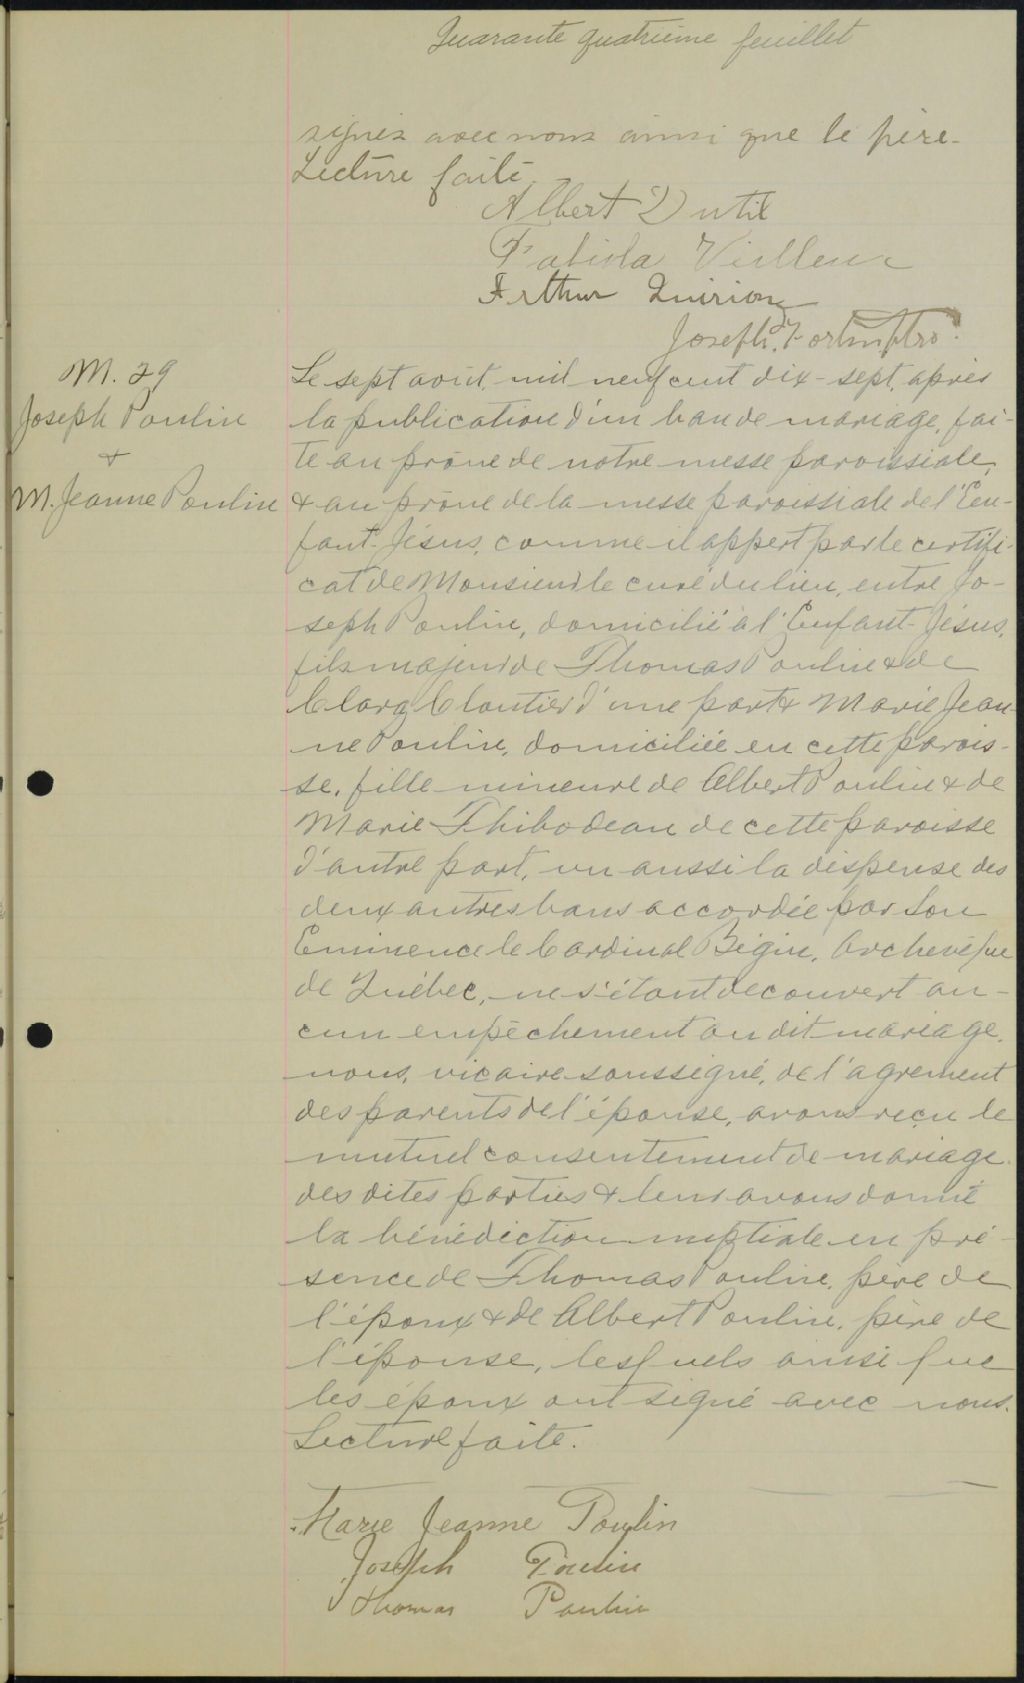 Quarante quatrième feuillet
signés avec nous ainsi que le père.
Lecture faite.
Albert Dutil
Fabiola Veilleux
Arthur Quirion
Joseph
M. 29
Joseph Poulin
+
M. Jeanne Poulin
Le sept août, mil neuf cent dix-sept, après
la publication d'un ban de mariage, fai-
te au prône de notre messe paroissiale,
& au prône de la messe paroissiale de l'En-
fant-Jésus, comme il appert par le certifi-
cat de Monsieur le curé du lieu, entre Jo-
seph Poulin, domicilié à l'Enfant-Jésus,
fils majeur de Thomas Poulin & de
Clara Cloutier d'une part & Marie Jean-
ne Poulin, domiciliée en cette parois-
se, fille mineure de Albert Poulin & de
Marie Thibodeau de cette paroisse
d'autre part, vu aussi la dispense des
deux autres bans accordée par Son
Eminence le Cardinal Bégin, Archevêque
de Québec, ne s'étant découvert au-
cun empêchement au dit mariage,
nous, vicaire soussigné, de l'agrément
des parents de l'épouse, avons reçu le
mutuel consentement de mariage
des dites parties & leur avons donné
la bénédiction nuptiale en pré-
sence de Thomas Poulin, père de
l'époux & de Albert Poulin, père de
l'épouse, lesquels ainsi que
les époux ont signé avec nous.
Lecture faite.
Marie Jeanne Poulin
Joseph Poulin
Thomas Poulin